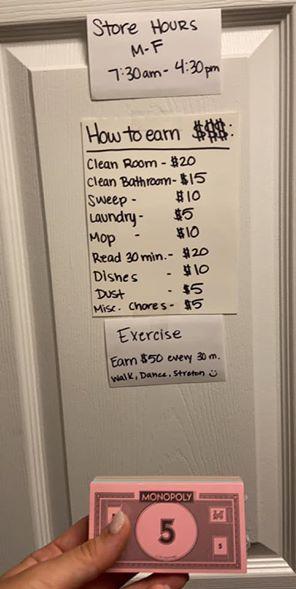 Store Hours
M-F
7:30am - 4:30pm
How to earn $$$:
Clean Room - $20
Clean Bathroom - $15
Sweep - $10
Laundry - $5
Mop - $10
Read 30 min. - $20
Dishes - $10
Dust - $5
Misc. Chores - $5
Exercise
Earn $50 every 30 m.
Walk, Dance, Stretch ☺
MONOPOLY
5
5